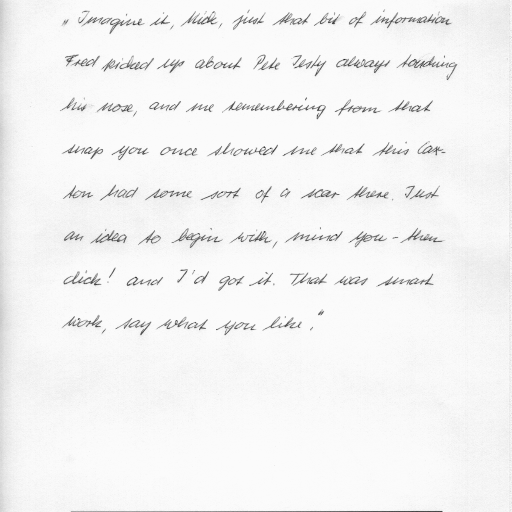 „Imagine it, Mide, just that bit of information
Fred picked up about Pete Testy always touching
his nose, and me remembering from that
snap you once showed me that this Cax-
ton had some sort of a scar there. Just
an idea to begin with, mind you - then
click! and I'd got it. That was smart
work, say what you like."